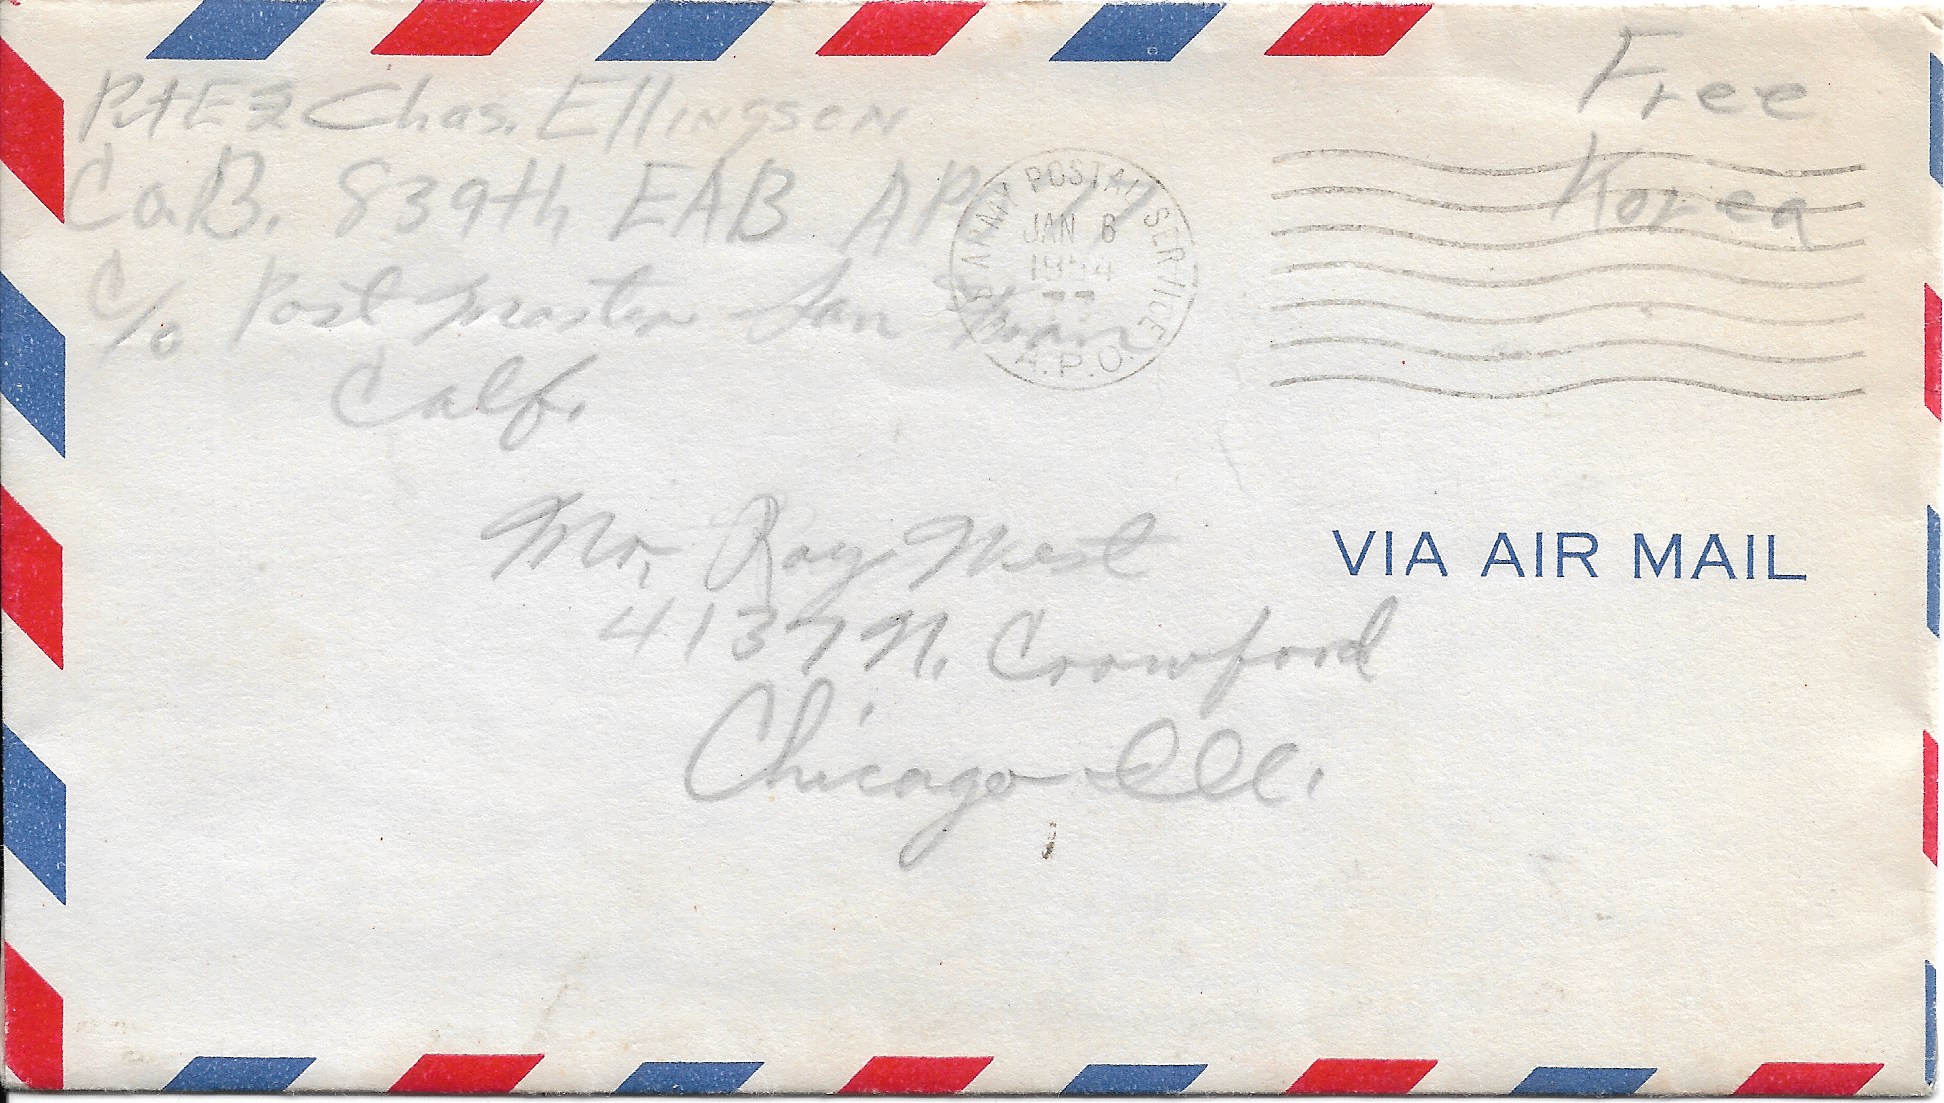 Pvt E2 Chas. Ellingson
Co. B. 839th EAB AP 77
c/o Post Master San Fran
Calf.
Free
Korea
ARMY POSTAL SERVICE
JAN 6
1954
77
A.P.O.
Mr, Ray West
4137 N. Crawford
Chicago Ill.
VIA AIR MAIL